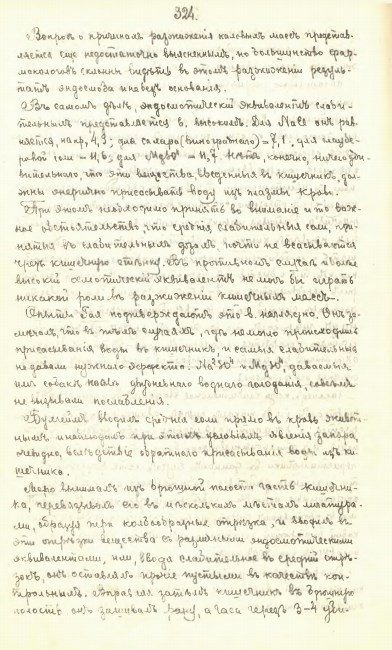 324.
Вопросъ о причинахъ разжиженія каловыхъ массъ представ-
ляется еще недостаточно выясненнымъ, но большинство фар-
макологовъ склонны видѣть въ этомъ разжиженіи резуль-
татъ эндосмоза и не безъ основанія.
Въ самомъ дѣлѣ, эндосмотическій эквивалентъ слаби-
тельныхъ представляется б. высокимъ. Для NaCl онъ рав-
няется, напр., 4,3; для сахара (винограднаго) = 7,1; для глаубе-
ровой соли = 11,6; для = 11,7. Нѣтъ, конечно, ничего уди-
вительнаго, что эти вещества, введенныя въ кишечникъ, дол-
жны энергично присасывать воду изъ плазмы крови.
При этомъ необходимо принять во вниманіе и то важ-
ное обстоятельство, что среднія слабительныя соли, при-
нятыя въ слабительныхъ дозахъ, почти не всасываются
черезъ кишечную стѣнку. Въ противномъ случаѣ и болѣе
высокій осмотическій эквивалентъ не могъ бы играть
никакой роли въ разжиженіи кишечныхъ массъ.
Опыты подтверждаютъ это в. наглядно. Онъ за-
мѣчалъ, что въ тѣхъ случаяхъ, гдѣ не могло происходить
присасыванія воды въ кишечникъ, и самыя слабительныя
не давали нужнаго эффекта. даваемыя
имъ собакамъ послѣ дневнаго воднаго голоданія, совсѣмъ
не вызывали послабленія.
вводилъ среднія соли прямо въ кровь живот-
нымъ и наблюдалъ при этихъ условіяхъ явленія запора,
очевидно, вслѣдствіе обратнаго присасыванія воды изъ ки-
шечника.
вынималъ изъ брюшной полости часть кишечни-
ка, перевязывалъ его въ нѣсколькихъ мѣстахъ лигатура-
ми, образуя три колбообразные отрѣзка, и вводилъ въ
эти отрѣзки вещества съ различными эндосмотическими
эквивалентами, или, вводя слабительное въ средній отрѣ-
зокъ, онъ оставлялъ прочіе пустыми въ качествѣ кон-
трольныхъ. Вправляя затѣмъ кишечникъ въ брюшную
полость онъ зашивалъ рану, а часа черезъ 3-4